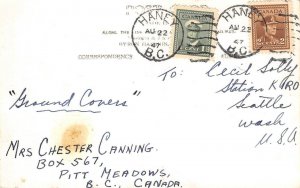 HANEY
AU 22
47
B.C.
HANEY
AU 22
47
B.C.
1
2
CORRESPONDENCE
To: Cecil Solly
Station KIRO
Seattle
Wash
U.S.A.
"Ground Covers"
MRS CHESTER CANNING.
BOX 567,
PITT MEADOWS,
B.C., CANADA.